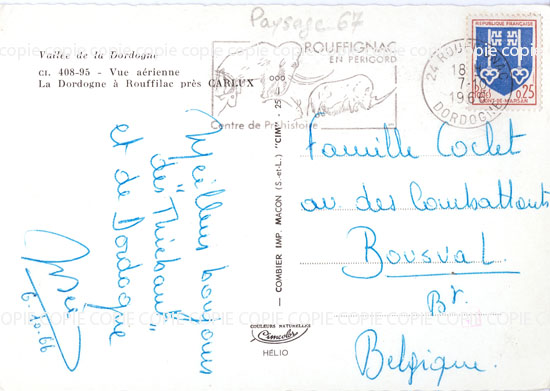 Paysage 67
Vallée de la Dordogne
CI. 408-95 - Vue aérienne
La Dordogne à Rouffilac près CARLUX
ROUFFIGNAC
EN PERIGORD
Centre de Préhistoire
24 ROUFFIGNAC
18 H
7-10
1966
DORDOGNE
REPUBLIQUE FRANÇAISE
0,25
MONT-DE-MARSAN
Meilleurs bonjours
des "Thiebaut"
et de Dordogne
6-10-66
COMBIER IMP. MACON (S.-et-L.) "CIM"
COULEURS NATURELLES
Cimcolor
HELIO
Famille Coclet
av. des Combattants
Bousval
Bt.
Belgique.
COPIE COPIE COPIE COPIE COPIE COPIE